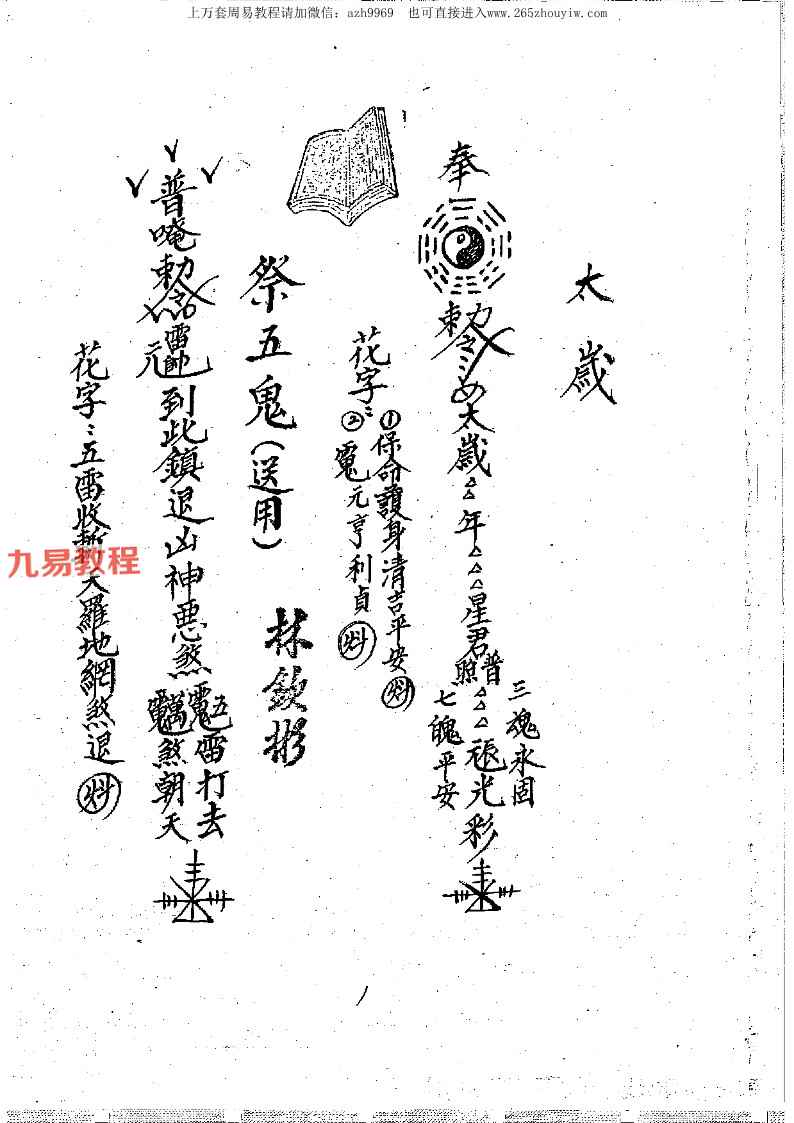 上万套周易教程请加微信：azh9969　也可直接进入www.265zhouyiw.com
太歲
奉
勅令太歲△△年△△△星君
普照
△△△
三魂永固
七魄平安
光彩
花字：
①保命護身清吉平安
②元亨利貞
祭五鬼(送用)
林欽彬
普唵勅令
雷
元帥
到此鎮退凶神惡煞
五
雷打去
萬
煞朝天
花字：五雷收
天羅地網煞退
九易教程
1